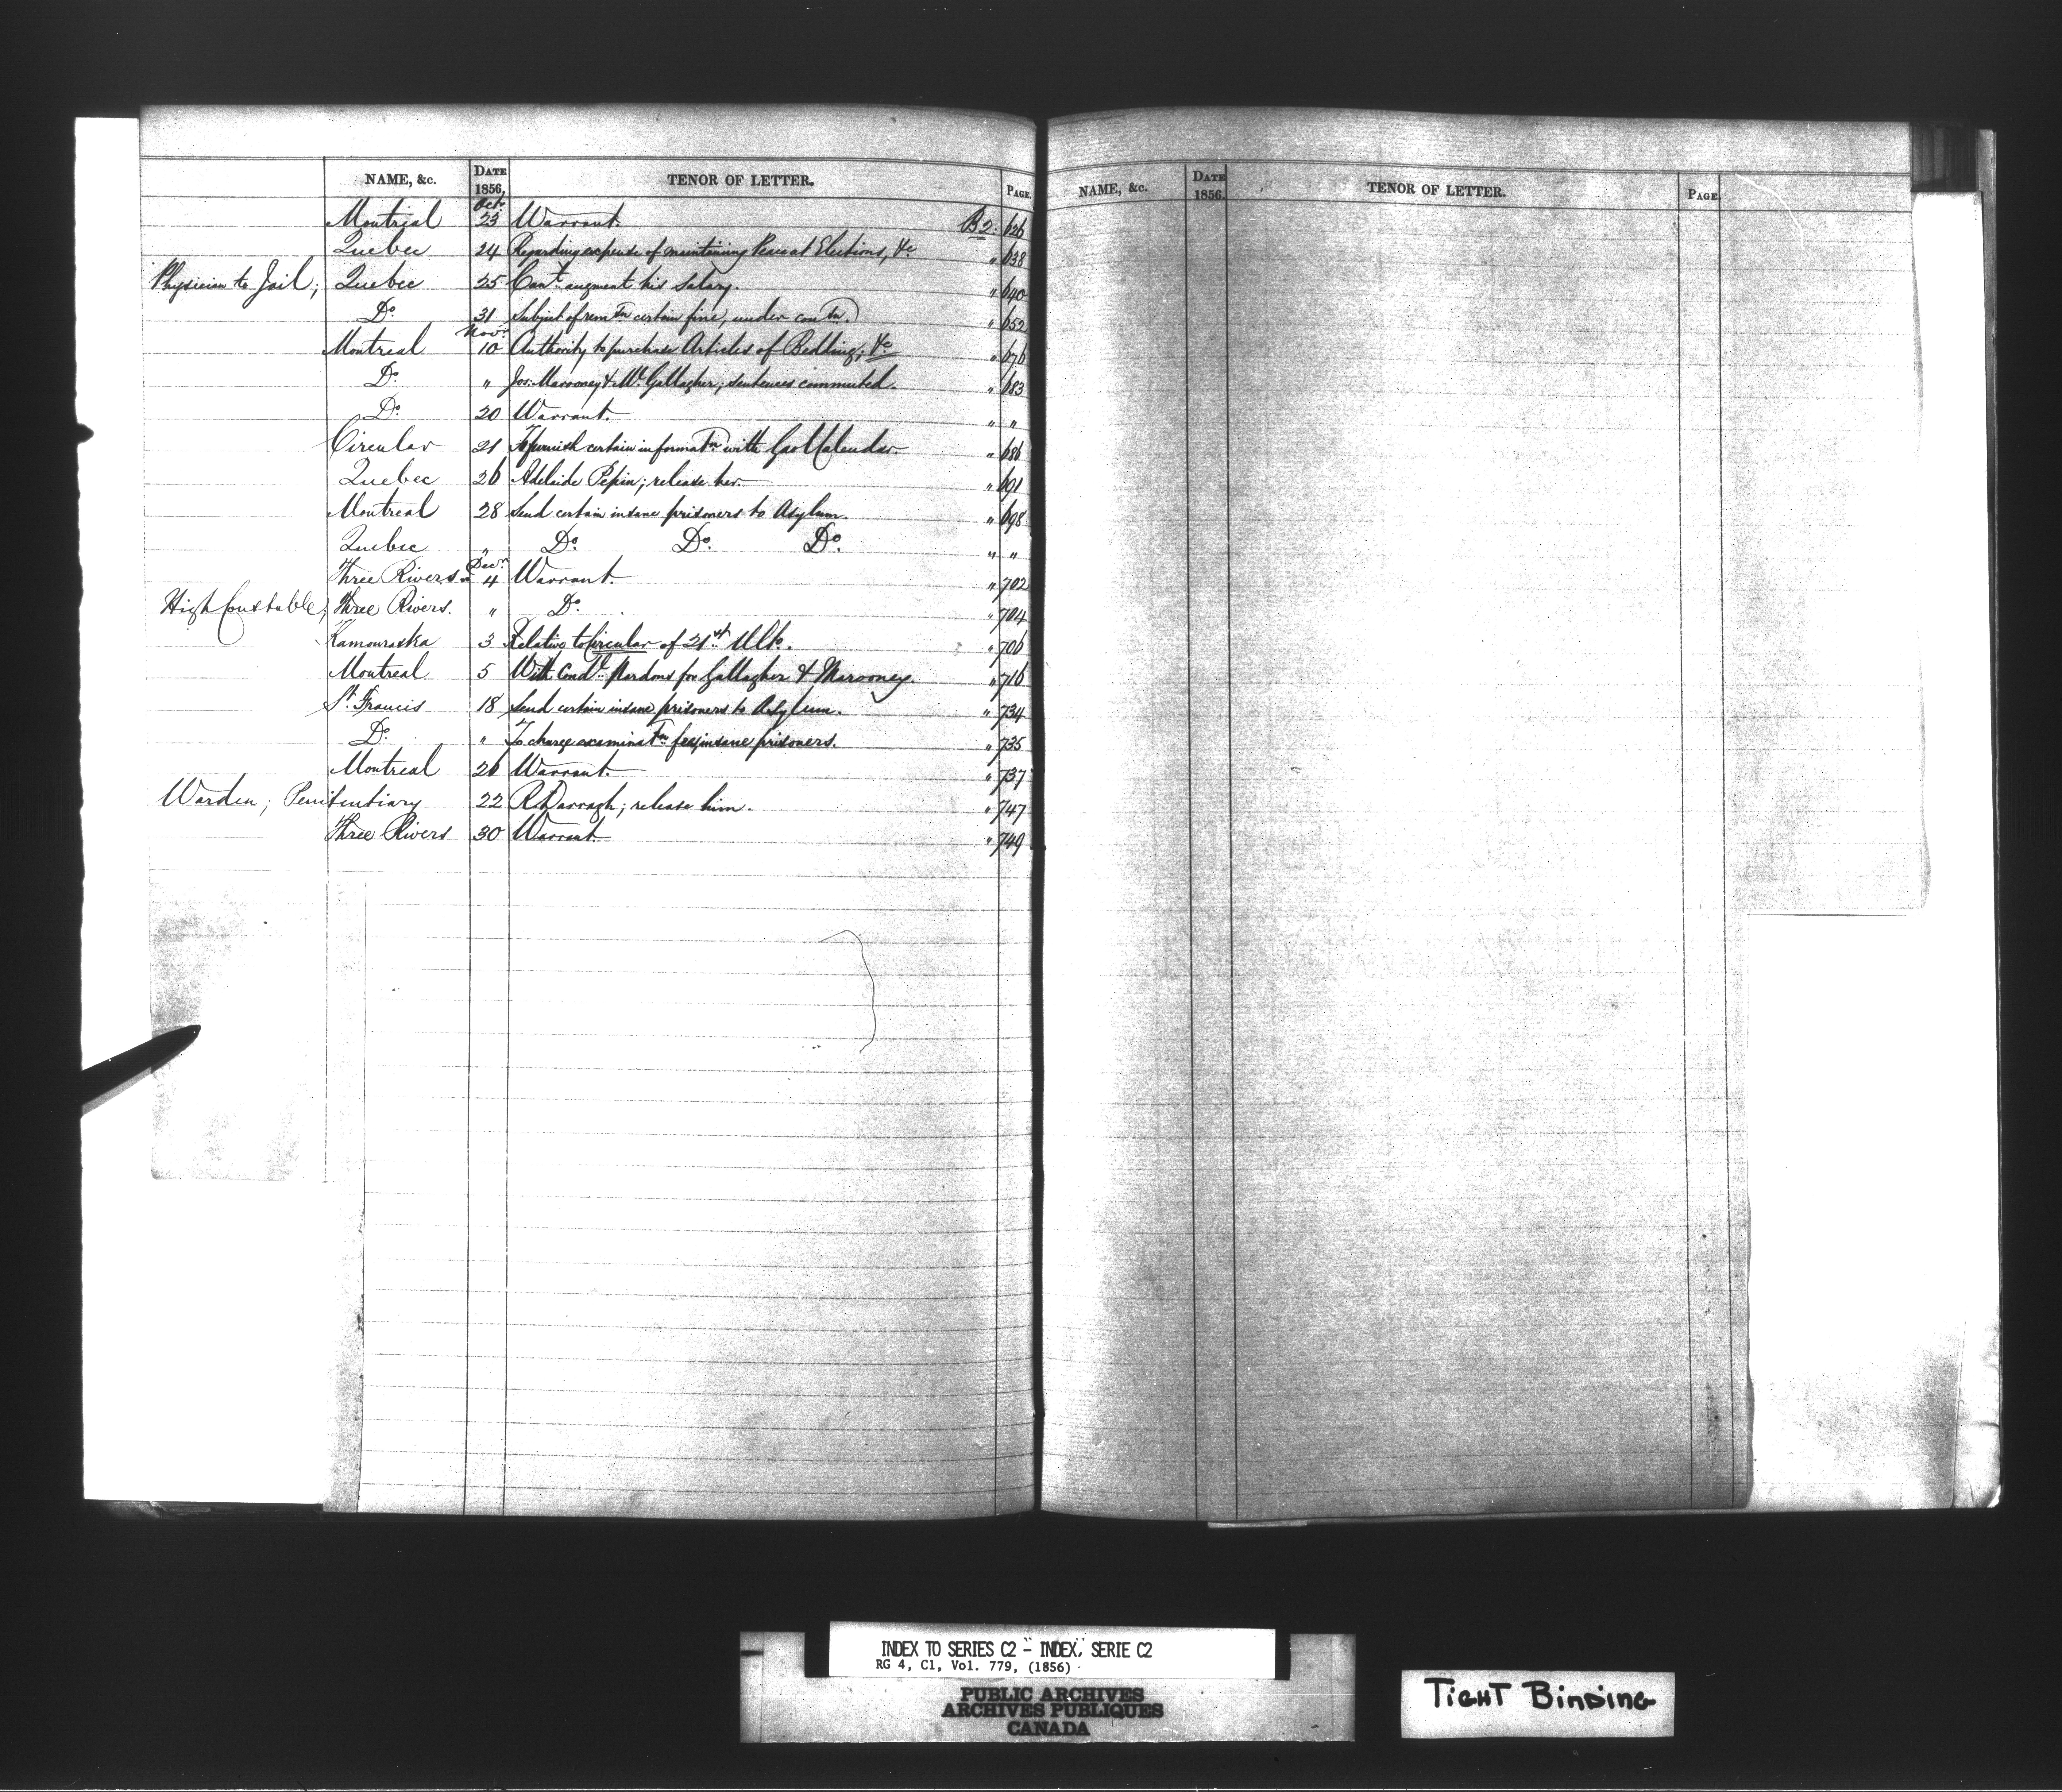 NAME, &c. DATE 1856, TENOR OF LETTER. PAGE.
Montreal Oct. 23 Warrant. B 2. 626
Quebec 24 Regarding expense of maintaining Peace at Elections, &c " 638
Physician to Jail; Quebec 25 Can't augment his Salary. " 640
Do. 31 Subject of remtn certain fine, under contn. " 652
Montreal Novr 10 Authority to purchase Articles of Bedding, &c " 676
Do. " Jos: Marooney & Gallagher; sentences commuted. " 683
Do. 20 Warrant. " "
Circular 21 To furnish certain informatn with Gaol Calendar. " 686
Quebec 26 Adelaide Pepin; release her. " 691
Montreal 28 Send certain insane prisoners to Asylum. " 698
Quebec " Do. Do. Do. " "
Three Rivers Decr 4 Warrant. " 702
High Constable; Three Rivers. " Do. " 704
Kamouraska 3 Relative to Circular of 21st Ulto. " 706
Montreal 5 With Condl Pardons for Gallagher & Marooney. " 716
St. Francis 18 Send certain insane prisoners to Asylum. " 734
Do. " To charge examinatn fees insane prisoners. " 735
Montreal 26 Warrant. " 737
Warden; Penitentiary 22 R. Darragh; release him. " 747
Three Rivers 30 Warrant. " 749
NAME, &c. DATE 1856. TENOR OF LETTER. PAGE.
INDEX TO SERIES C2 - INDEX, SERIE C2
RG 4, C1, Vol. 779, (1856)
PUBLIC ARCHIVES
ARCHIVES PUBLIQUES
CANADA
TIGHT BINDING